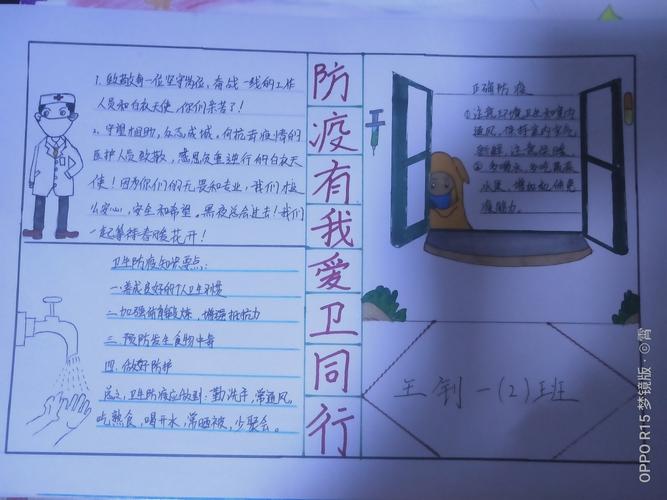 1. 致敬每一位坚守岗位,奋战一线的工作
人员和白衣天使,你们亲苦了!
2. 守望相助,众志成城,向抗击疫情的
医护人员致敬,感恩负重逆行的白衣天
使!因为你们的无畏和专业,我们才核
么安心,安全和希望。黑夜总会过去!我们
一起等待春暖花开!
卫生防疫知识要点:
一.养成良好的个人卫生习惯
二.加强体育锻炼,增强抵抗力
三.预防发生食物中毒
四.做好防护
总之,卫生防疫应做到:勤洗手,常通风,
吃熟食,喝开水,常晒被,少聚会。
防
疫
有
我
爱
卫
同
行
正确防疫
①注意环境卫生和室内
通风,保持室内空气
新鲜,注意保暖
②多喝水,多吃蔬菜
水果,增加机体免
疫能力。
王钊一(2)班
OPPO R15 梦镜版·©霄